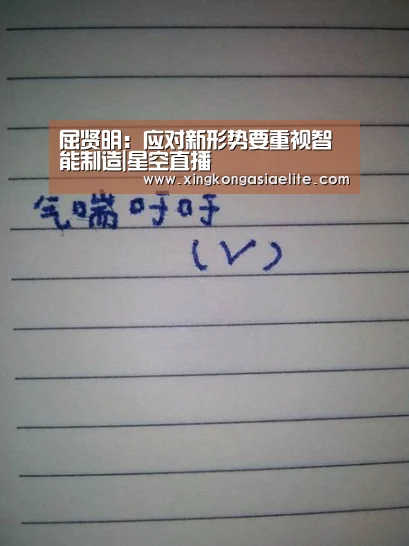 屈贤明：应对新形势要重视智
能制造|星空直播
www.xingkongasiaelite.com
气喘吁吁
(√)